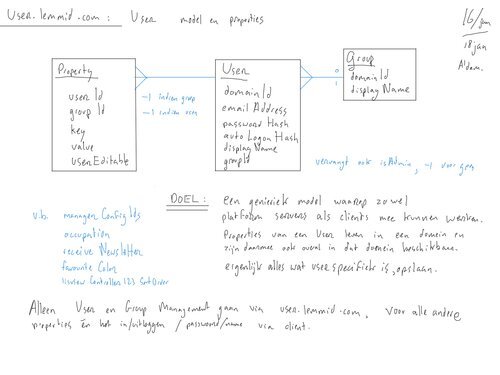 User.lemmid.com: User model en properties
16/jan
18jan
A'dam.
Property
userId
groupId
key
value
userEditable
-1 indien groep
-1 indien user
User
domainId
emailAddress
passwordHash
autoLogonHash
displayName
groupId
0
1
Group
domainId
displayName
vervangt ook isAdmin, -1 voor geen
DOEL:
een generiek model waarop zowel
platform servers als clients mee kunnen werken.
Properties van een User leven in een domein en
zijn daarmee ook overal in dat domein beschikbaar.
eigenlijk alles wat userspecifiek is, opslaan.
v.b. manager ConfigIds
occupation
receive Newsletter
favourite Color
listviewController123 SortOrder
Alleen User en Group Management gaan via user.lemmid.com, voor alle andere
properties én het in/uitloggen / password/name via client.